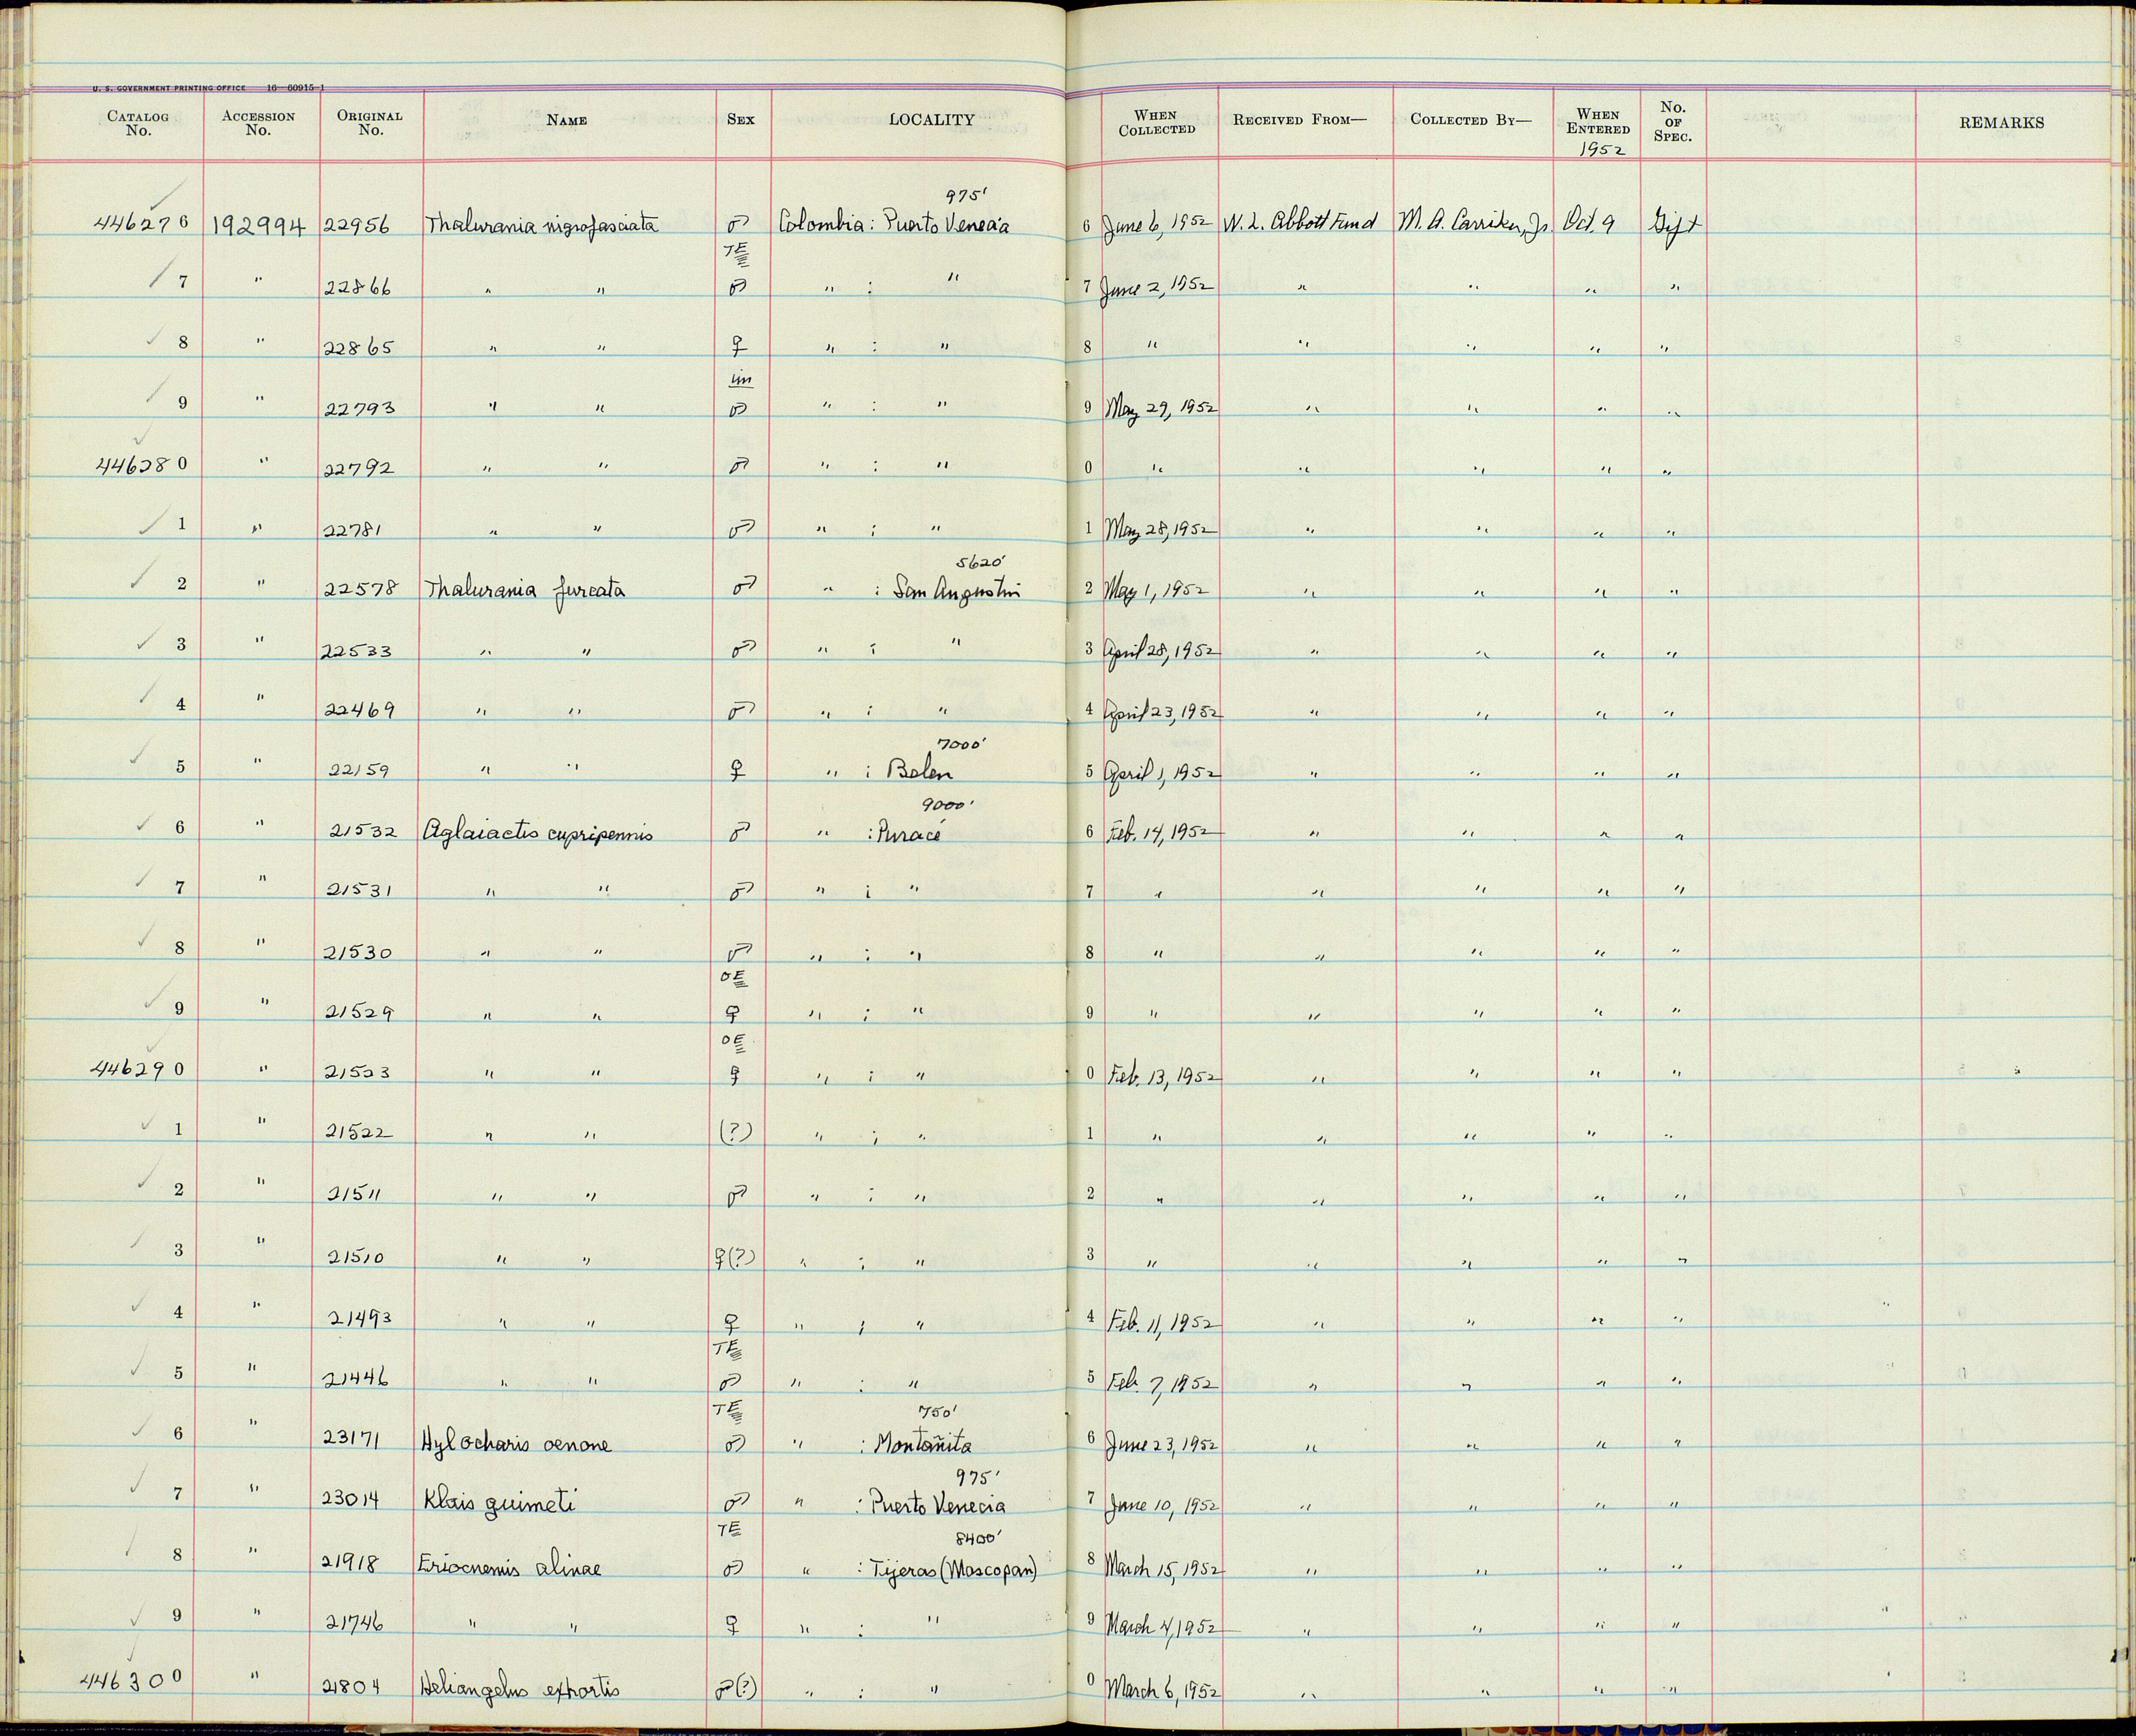 U. S. GOVERNMENT PRINTING OFFICE 16—60915-1
CATALOG No. ACCESSION No. ORIGINAL No. NAME SEX LOCALITY WHEN COLLECTED RECEIVED FROM— COLLECTED BY— WHEN ENTERED 1952 No. OF SPEC. REMARKS
975'
446276 192994 22956 Thalurania nigrofasciata ♂ Colombia: Puerto Venecia 6 June 6, 1952 W. L. Abbott Fund M. A. Carriker, Jr. Oct. 9 Gift
TE
7 " 22866 " " ♂ " : " 7 June 2, 1952 " " " "
8 " 22865 " " ♀ " : " 8 " " " " "
im
9 " 22793 " " ♂ " : " 9 May 29, 1952 " " " "
446280 " 22792 " " ♂ " : " 0 " " " " "
1 " 22781 " " ♂ " : " 1 May 28, 1952 " " " "
5620'
2 " 22578 Thalurania furcata ♂ " : San Angustin 2 May 1, 1952 " " " "
3 " 22533 " " ♂ " : " 3 April 28, 1952 " " " "
4 " 22469 " " ♂ " : " 4 April 23, 1952 " " " "
7000'
5 " 22159 " " ♀ " : Belen 5 April 1, 1952 " " " "
9000'
6 " 21532 Aglaiactis cupripennis ♂ " : Puracé 6 Feb. 14, 1952 " " " "
7 " 21531 " " ♂ " : " 7 " " " " "
8 " 21530 " " ♂ " : " 8 " " " " "
OE
9 " 21529 " " ♀ " : " 9 " " " " "
OE
446290 " 21523 " " ♀ " : " 0 Feb. 13, 1952 " " " "
1 " 21522 " " (?) " : " 1 " " " " "
2 " 21511 " " ♂ " : " 2 " " " " "
3 " 21510 " " ♀(?) " : " 3 " " " " "
4 " 21493 " " ♀ " : " 4 Feb. 11, 1952 " " " "
TE
5 " 21446 " " ♂ " : " 5 Feb. 7, 1952 " " " "
TE 750'
6 " 23171 Hylocharis oenone ♂ " : Montañita 6 June 23, 1952 " " " "
975'
7 " 23014 Klais guimeti ♂ " : Puerto Venecia 7 June 10, 1952 " " " "
TE 8400'
8 " 21918 Eriocnemis alinae ♂ " : Tijeras (Moscopan) 8 March 15, 1952 " " " "
9 " 21746 " " ♀ " : " 9 March 4, 1952 " " " "
446300 " 21804 Heliangelus exhortis ♂(?) " : " 0 March 6, 1952 " " " "